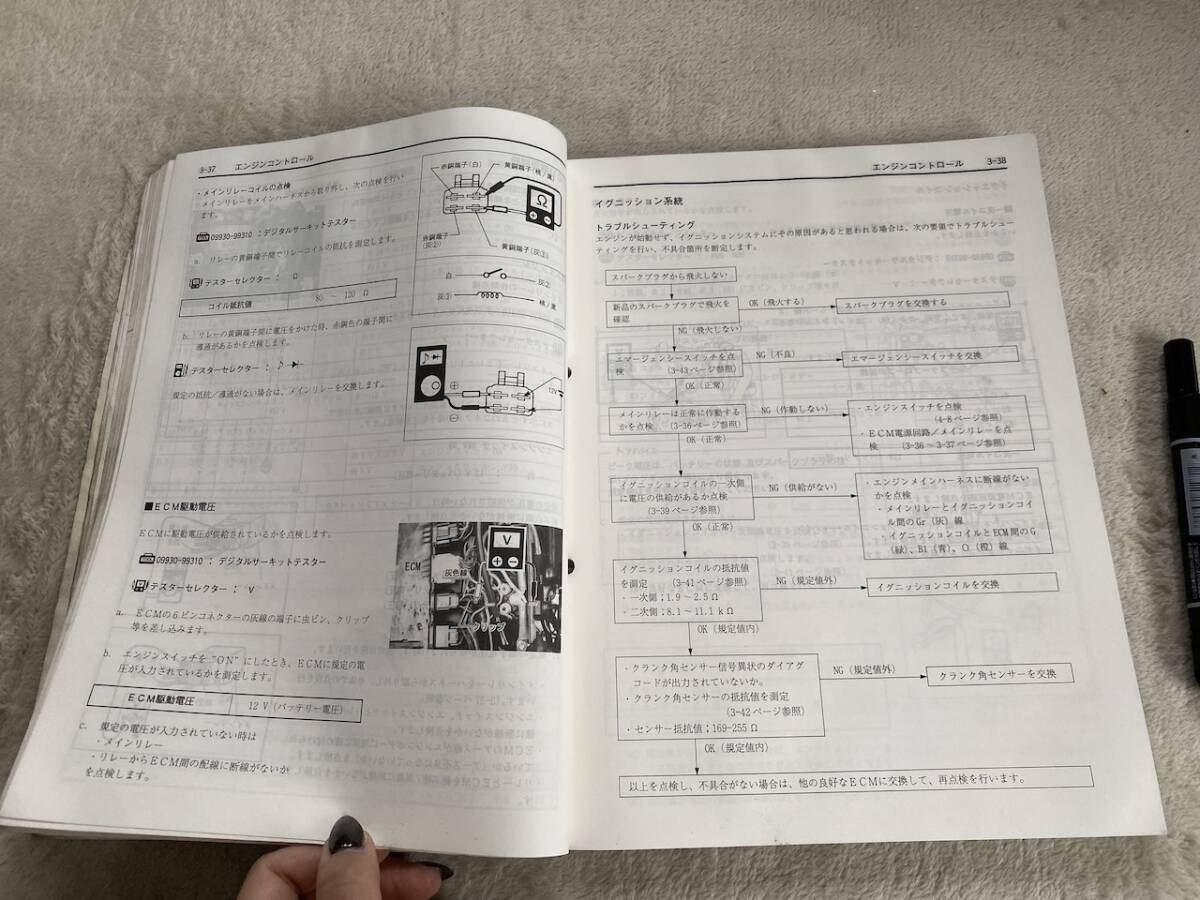 3-37 エンジンコントロール
・メインリレーコイルの点検
メインリレーをメインハーネスから取り外し、次の点検を行い
ます。
09930-99310：デジタルサーキットテスター
a. リレーの黄銅端子間でリレーコイルの抵抗を測定します。
テスターセレクター： Ω
コイル抵抗値 80 ～ 120 Ω
b. リレーの黄銅端子間に電圧をかけた時、赤銅色の端子間に
導通があるかを点検します。
テスターセレクター：
規定の抵抗／導通がない場合は、メインリレーを交換します。
赤銅端子(白)
黄銅端子(桃／黒)
Ω
赤銅端子
(灰②)
黄銅端子(灰③)
白
灰②
灰③
桃／黒
⊕
⊖
12V
■ECM駆動電圧
ECMに駆動電圧が供給されているかを点検します。
09930-99310：デジタルサーキットテスター
テスターセレクター： V
a. ECMの6ピンコネクターの灰線の端子に虫ピン、クリップ
等を差し込みます。
b. エンジンスイッチを"ON"にしたとき、ECMに規定の電
圧が入力されているかを測定します。
ECM駆動電圧 12 V (バッテリー電圧)
c. 規定の電圧が入力されていない時は
・メインリレー
・リレーからECM間の配線に断線がないか
を点検します。
ECM
灰色線
V
クリップ
エンジンコントロール 3-38
イグニッション系統
トラブルシューティング
エンジンが始動せず、イグニッションシステムにその原因があると思われる場合は、次の要領でトラブルシュー
ティングを行い、不具合箇所を断定します。
スパークプラグから飛火しない
新品のスパークプラグで飛火を
確認
OK (飛火する)
スパークプラグを交換する
NG (飛火しない)
エマージェンシースイッチを点
検 (3-43ページ参照)
NG (不良)
エマージェンシースイッチを交換
OK (正常)
メインリレーは正常に作動する
かを点検 (3-36ページ参照)
NG (作動しない)
・エンジンスイッチを点検
(4-8ページ参照)
・ECM電源回路／メインリレーを点
検 (3-36～3-37ページ参照)
OK (正常)
イグニッションコイルの一次側
に電圧の供給があるか点検
(3-39ページ参照)
NG (供給がない)
・エンジンメインハーネスに断線がない
かを点検
・メインリレーとイグニッションコイ
ル間のGr (灰) 線
イグニッションコイルとECM間のG
(緑)、B1 (青)、O (橙) 線
OK (正常)
イグニッションコイルの抵抗値
を測定 (3-41ページ参照)
・一次側；1.9～2.5Ω
・二次側；8.1～11.1kΩ
NG (規定値外)
イグニッションコイルを交換
OK (規定値内)
・クランク角センサー信号異状のダイアグ
コードが出力されていないか。
・クランク角センサーの抵抗値を測定
(3-42ページ参照)
・センサー抵抗値；169-255Ω
NG (規定値外)
クランク角センサーを交換
OK (規定値内)
以上を点検し、不具合がない場合は、他の良好なECMに交換して、再点検を行います。